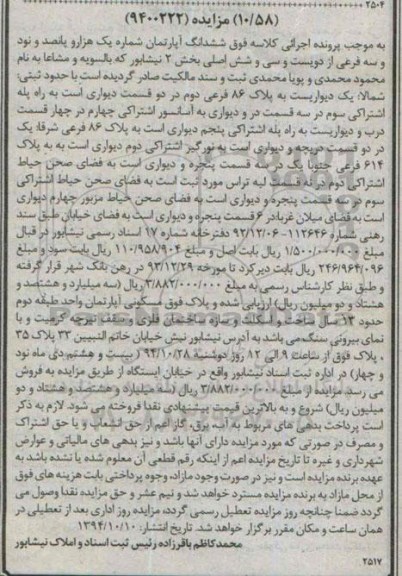 ۲۵۰۴
(۱۰/۵۸) مزایده (۹۴۰۰۲۲۲)
به موجب پرونده اجرائی کلاسه فوق ششدانگ آپارتمان شماره یک هزارو پانصد و نود
و سه فرعی از دویست و سی و شش اصلی بخش ۲ نیشابور که بالسویه و مشاعا به نام
محمود محمدی و پویا محمدی ثبت و سند مالکیت صادر گردیده است با حدود ثبتی:
شمالا: یک دیواریست به پلاک ۸۶ فرعی دوم در دو قسمت دیواری است به راه پله
اشتراکی سوم در سه قسمت در و دیواری به آسانسور اشتراکی چهارم در چهار قسمت
درب و دیواریست به راه پله اشتراکی پنجم دیواری است به پلاک ۸۶ فرعی شرقا: یک
در دو قسمت دریچه و دیواری است به نورگیر اشتراکی دوم دیواری است به به پلاک
۶۱۴ فرعی جنوبا یک در سه قسمت پنجره و دیواری است به فضای صحن حیاط
اشتراکی دوم در نه قسمت لبه تراس مورد ثبت است به فضای صحن حیاط اشتراکی
سوم در سه قسمت پنجره و دیواری است به فضای صحن حیاط مزبور چهارم دیواری
است به فضای میلان غربا در ۶ قسمت پنجره و دیواری است به فضای خیابان طبق سند
رهنی شماره ۱۱۲۶۴۶-۹۲/۱۲/۰۶ دفترخانه شماره ۱۷ اسناد رسمی نیشابور در قبال
مبلغ ۱/۵۰۰/۰۰۰/۰۰۰ ریال بابت اصل و مبلغ ۱۱۰/۹۵۸/۹۰۴ ریال بابت سود و مبلغ
۲۴۶/۹۶۴/۰۹۶ ریال بابت دیرکرد تا مورخه ۹۳/۱۲/۲۹ در رهن بانک شهر قرار گرفته
و طبق نظر کارشناس رسمی به مبلغ ۳/۸۸۲/۰۰۰/۰۰۰ ریال (سه میلیارد و هشتصد و
هشتاد و دو میلیون ریال) ارزیابی شده و پلاک فوق مسکونی آپارتمان واحد طبقه دوم
حدود ۱۳ سال ساخت و اسکلت و سازه ساختمان فلزی و سقف تیرچه کرمیت و با
نمای بیرونی سنگ می باشد به آدرس نیشابور نبش خیابان خاتم النبیین ۳۳ پلاک ۳۵
، پلاک فوق از ساعت ۹ الی ۱۲ روز دوشنبه ۹۴/۱۰/۲۸ ( بیست و هشتم دی ماه نود
و چهار) در اداره ثبت اسناد نیشابور واقع در خیابان ایستگاه از طریق مزایده به فروش
می رسد مزایده از مبلغ ۳/۸۸۲/۰۰۰/۰۰۰ ریال (سه میلیارد و هشتصد و هشتاد و دو
میلیون ریال) شروع و به بالاترین قیمت پیشنهادی نقدا فروخته می شود. لازم به ذکر
است پرداخت بدهی های مربوط به آب، برق، گاز اعم از حق انشعاب و یا حق اشتراک
و مصرف در صورتی که مورد مزایده دارای آنها باشد و نیز بدهی های مالیاتی و عوارض
شهرداری و غیره تا تاریخ مزایده اعم از اینکه رقم قطعی آن معلوم شده یا نشده باشد به
عهده برنده مزایده است و نیز در صورت وجود مازاد، وجوه پرداختی بابت هزینه های فوق
از محل مازاد به برنده مزایده مسترد خواهد شد و نیم عشر و حق مزایده نقدا وصول می
گردد ضمنا چنانچه روز مزایده تعطیل رسمی گردد، مزایده روز اداری بعد از تعطیلی در
همان ساعت و مکان مقرر برگزار خواهد شد. تاریخ انتشار: ۱۳۹۴/۱۰/۱۰
محمد کاظم باقرزاده رئیس ثبت اسناد و املاک نیشابور
۲۵۱۷